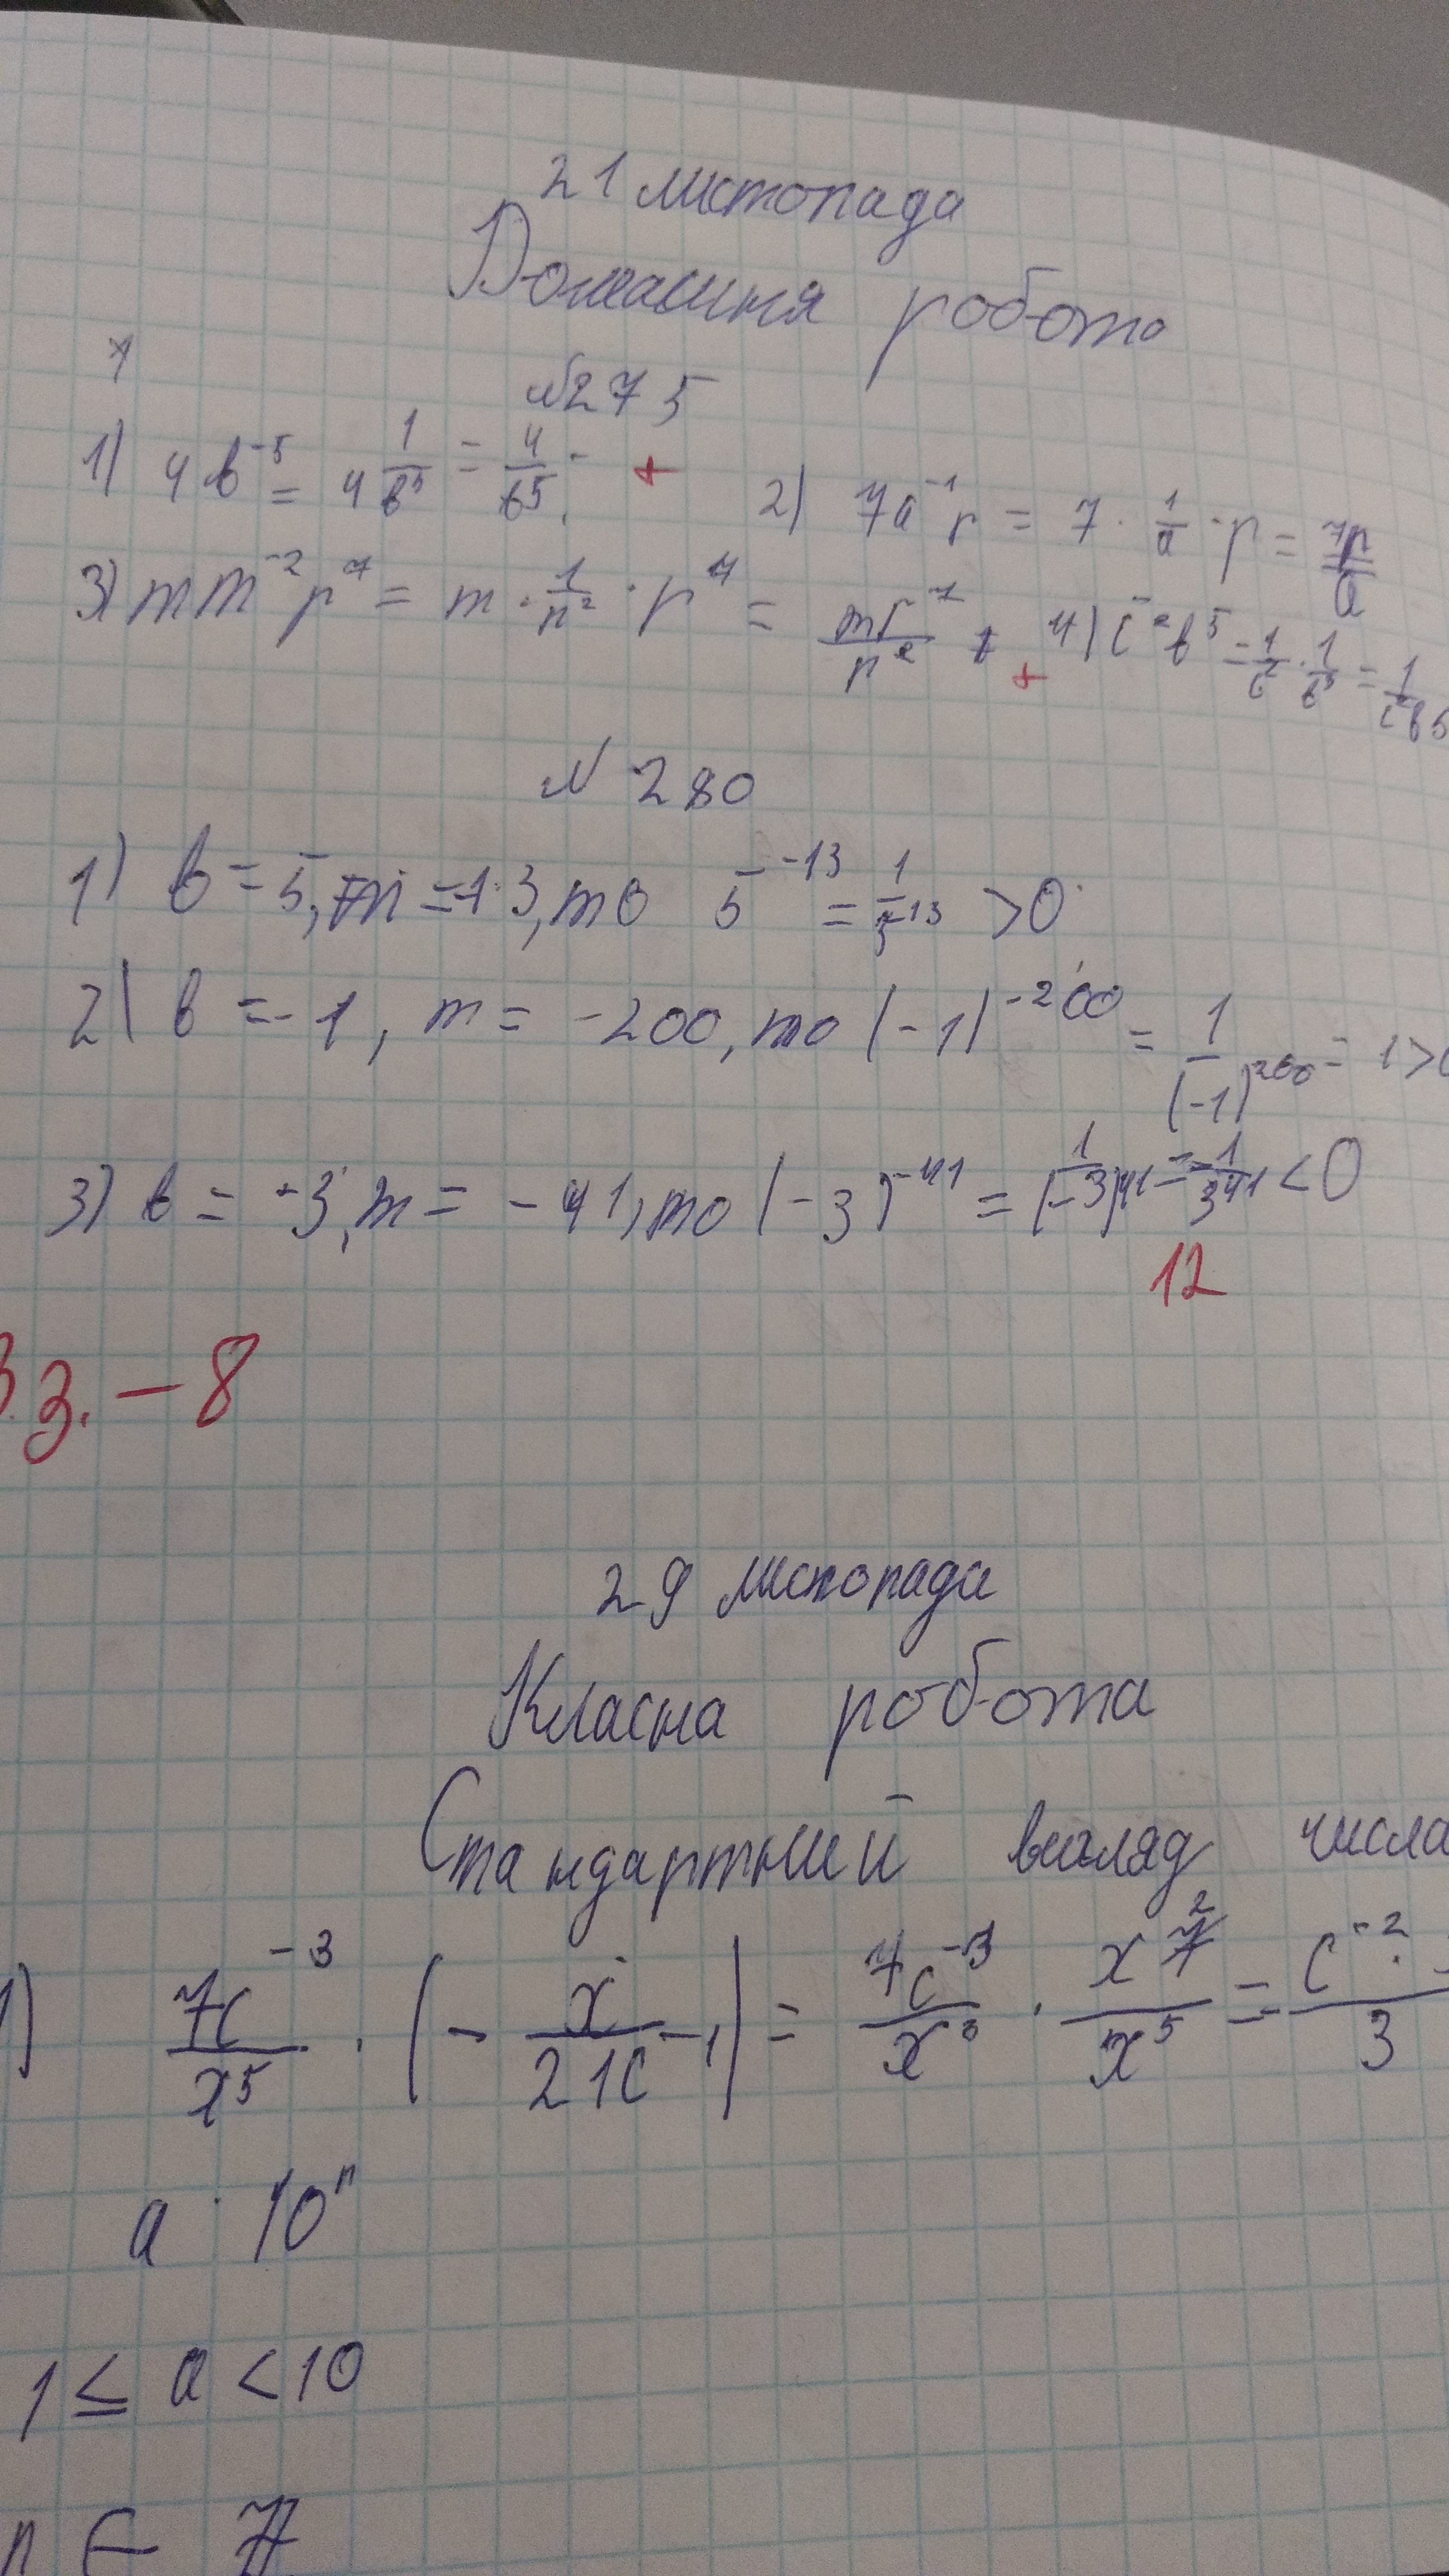 21 листопада
Домашня робота
№275
1) 4b⁻⁵ = 4 1/b⁵ = 4/b⁵. +
2) 7a⁻¹p = 7 · 1/a · p = 7p/a
3) mm⁻²p⁷ = m · 1/n² · p⁷ = mp⁷/n² +
4) c⁻²b⁵ = 1/c² · 1/b⁵ = 1/c²b5
№ 280
1) b = 5, m = -13, то 5⁻¹³ = 1/5¹³ > 0
2) b = -1, m = -200, то (-1)⁻²⁰⁰ = 1/(-1)²⁰⁰ = 1 >
3) b = -3, m = -41, то (-3)⁻⁴¹ = 1/(-3)⁴¹ = -1/3⁴¹ < 0
12
З. – 8
29 листопада
Класна робота
Стандартний вигляд числа
1) 7c⁻³/x⁵ · (- x/21c⁻¹) = 7c⁻³/x⁵ · x²/x⁵ = c⁻² ·/3
a · 10ⁿ
1 ≤ a < 10
n ∈ Z